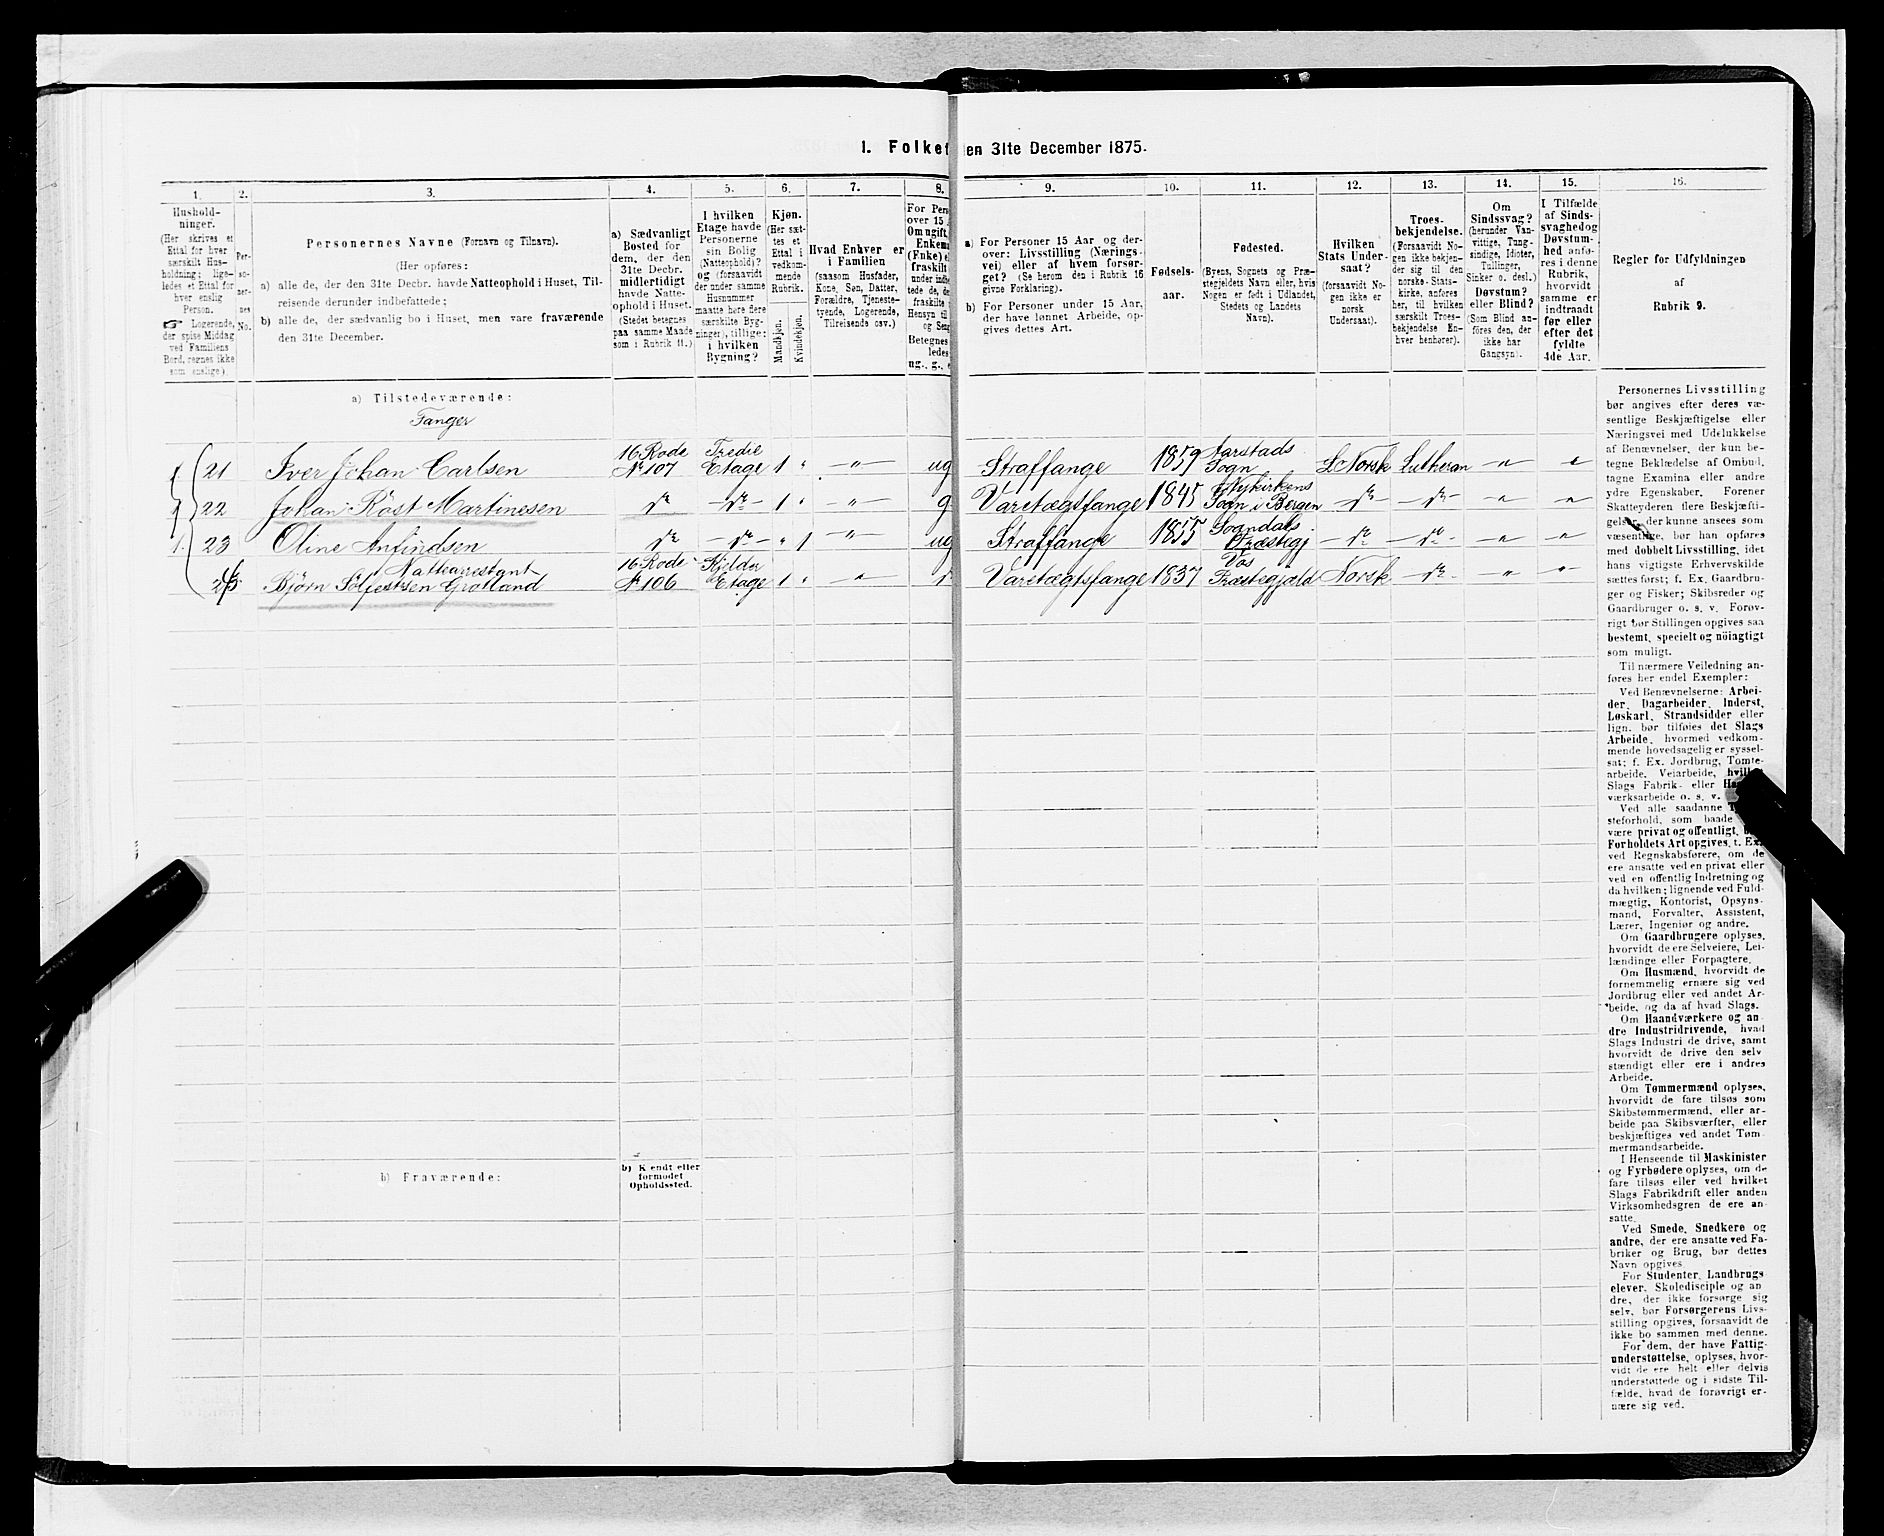 1. Folket
den 31te December 1875.
1. 2. 3. 4. 5. 6. 7. 8. 9. 10. 11. 12. 13. 14. 15. 16.
Hushold-
ninger.
(Her skrives et
Ettal for hver
særskilt Hus-
holdning; lige-
ledes et Ettal for
hver enslig
Person.
☞ Logerende,
der spise Middag
ved Familiens
Bord, regnes ikke
som enslige).
Per-
so-
ner-
nes
No.
Personernes Navne (Fornavn og Tilnavn).
(Her opføres:
a) alle de, der den 31te Decbr. havde Natteophold i Huset, Til-
reisende derunder indbefattede;
b) alle de, der sædvanlig bo i Huset, men vare fraværende
den 31te December.
a) Sædvanligt
Bosted for
dem, der den
31te Decbr.
midlertidigt
havde Natte-
ophold i Huset.
(Stedet betegnes
paa samme Maade
som i Rubrik 11.)
I hvilken
Etage havde
Personerne
sin Bolig
(Natteophold)?
og (forsaavidt
der under samme
Husnummer
maatte høre flere
særskilte Byg-
ninger), tillige:
i hvilken
Bygning?
Kjøn.
(Her sæt-
tes et
Ettal i
vedkom-
mende
Rubrik.
Mandkjøn.
Kvindekjøn.
Hvad Enhver er
i Familien
(saasom Husfader,
Kone, Søn, Datter,
Forældre, Tjeneste-
tyende, Logerende,
Tilreisende osv.)
For Pers
over 15 A
Om ugift,
Enkema
(Enke) e
fraskilt
under indbe
tede de, de
fraskilte
Hensyn til
og Seng
Betegnes
ledes
ug., g., e
a) For Personer 15 Aar og der-
over: Livsstilling (Nærings-
vei) eller af hvem forsør-
get? (Se herom den i Rubrik 16
givne Forklaring).
b) For Personer under 15 Aar,
der have lønnet Arbeide, op-
gives dettes Art.
Fødsels-
aar.
Fødested.
(Byens, Sognets og Præ-
stegjeldets Navn eller, hvis
Nogen er født i Udlandet,
Stedets og Landets
Navn).
Hvilken
Stats Under-
saat?
(forsaavidt No-
gen ikke er
norsk
Undersaat).
Troes-
bekjendelse.
(Forsaavidt No-
gen ikke bekjen-
der sig til den
norske Stats-
kirke, anføres
her, til hvilken
særskilt Troes-
bekjendelse En-
hver henhører).
Om
Sindssvag?
(herunder Van-
vittige, Tung-
sindige, Idioter,
Tullinger,
Sinker o. desl.)
Døvstum?
eller Blind?
(Som Blind an-
føres den, der
ikke har
Gangsyn).
I Tilfælde
af Sinds-
svaghed og
Døvstum-
hed anfø-
res i denne
Rubrik,
hvorvidt
samme er
indtraadt
før eller
efter det
fyldte
4de Aar.
Regler for Udfyldningen
af
Rubrik 9.
a) Tilstedeværende:
Fanger
1 21 Iver Johan Carlsen 16 Rode No 107 Tredie Etage 1 " -"- ug Straffange 1859 Aarstads Sogn Norsk Lutheran -"- "
1 22 Johan Röst Martinesen do -do- 1 " -"- g Varetægtsfange 1845 Nykirkens Sogn i Bergen -do- -do- " "
1. 23 Oline Anfindsen do -do- " 1 -"- ug Straffange 1855 Sogndals Præstegj -do- -do- " "
Natearrestant
24 Bjørn Sølfestsen Grotland 16 Rode No 106 Kjelder Etage 1 " " Varetægtsfange 1837 Vos Præstegjeld Norsk -do- " "
b) Fraværende:
b) Kjendt eller
formodet
Opholdssted.
Personernes Livsstilling
bør angives efter deres væ-
sentlige Beskjæftigelse eller
Næringsvei med Udelukkelse
af Benævnelser, der kun be-
tegne Beklædelse af Ombud,
tagne Examina eller andre
ydre Egenskaber. Forener
Skatteyderen flere Beskjæfti-
gelser, der kunne ansees som
væsentlige, bør han opføres
med dobbelt Livsstilling, idet
hans vigtigste Erhvervskilde
sættes først; f. Ex. Gaardbru-
ger og Fisker; Skibsreder og
Gaardbruger o. s. v. Forøv-
rigt bør Stillingen opgives saa
bestemt, specielt og nöiagtigt
som muligt.
Til nærmere Veiledning an-
føres her endel Exempler:
Ved Benævnelserne: Arbei-
der, Dagarbeider, Inderst,
Løskarl, Strandsidder eller
lign. bør tilføies det Slags
Arbeide, hvormed vedkom-
mende hovedsagelig er syssel-
sat; f. Ex. Jordbrug, Tomte-
arbeide, Veiarbeide, hvilket
Slags Fabrik- eller
værksarbeide o. s. v.
Ved alle saadanne
steforhold, som baade
være privat og offentligt,
Forholdets Art opgives, t. Ex.
ved Regnskabsførere, om de
ere ansatte ved en privat eller
ved en offentlig Indretning og
da hvilken; lignende ved Fuld-
mægtig, Kontorist, Opsyns-
mand, Forvalter, Assistent,
Lærer, Ingeniør og andre.
Om Gaardbrugere oplyses,
hvorvidt de ere Selveiere, Lei-
lændinge eller Forpagtere.
Om Husmænd, hvorvidt de
fornemmelig ernære sig ved
Jordbrug eller ved andet Ar-
beide, og da af hvad Slags.
Om Haandværkere og an-
dre Industridrivende, hvad
Slags Industri de drive, samt
hvorvidt de drive den selv-
stændigt eller ere i andres
Arbeide.
Om Tømmermænd oplyses,
hvorvidt de fare tilsøs som
Skibstømmermænd, eller ar-
beide paa Skibsværfter, eller
beskjæftiges ved andet Tøm-
mermandsarbeide.
I Henseende til Maskinister
og Fyrbødere oplyses, om de
fare tilsøs eller ved hvilket
Slags Fabrikdrift eller anden
Virksomhedsgren de ere an-
satte.
Ved Smede, Snedkere og
andre, der ere ansatte ved Fa-
briker og Brug, bør dettes
Navn opgives
For Studenter, Landbrugs-
elever, Skoledisciple og an-
dre, der ikke forsørge sig
selv, bør Forsørgerens Livs-
stilling opgives, forsaavidt de
ikke bo sammen med denne.
For dem, der have Fattig-
understøttelse, oplyses, hvor-
vidt de ere helt eller delvis
understøttede og i sidste Til-
fælde, hvad de forøvrigt er-
nære sig ved.